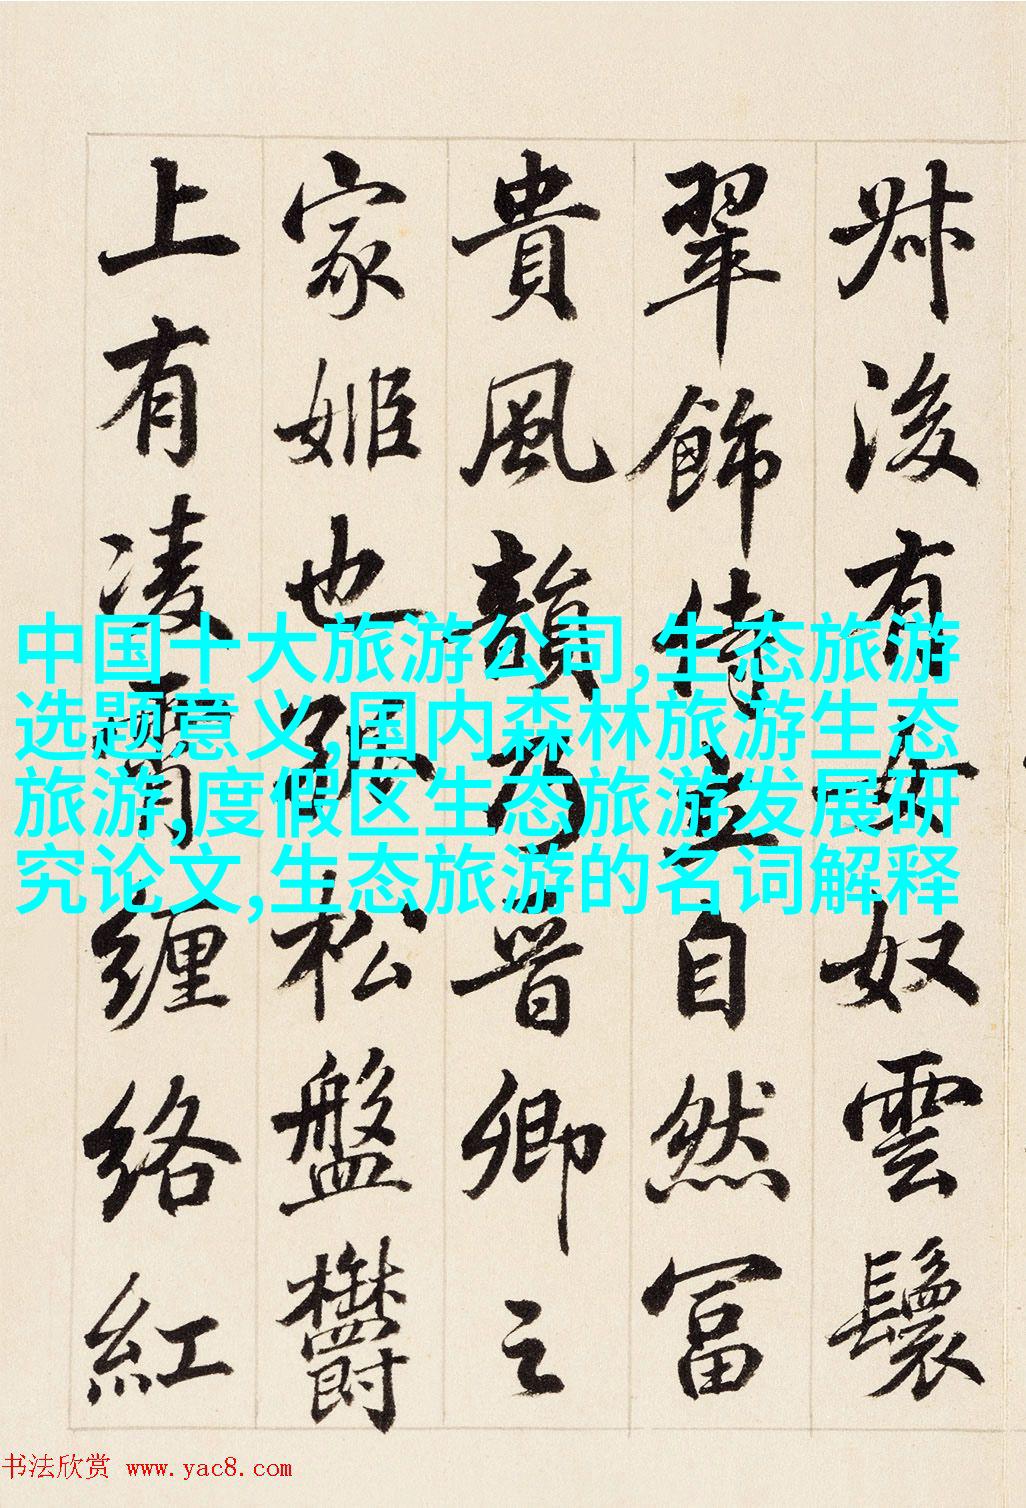 叔後有女奴雲鬟
翠飾侍立自然富
貴風韻乃晉卿之
家姬也孤松盤鬱
上有凌霄纏絡紅
中国十大旅游公司,生态旅游
选题意义,国内森林旅游生态
旅游,度假区生态旅游发展研
究论文,生态旅游的名词解释
书法欣赏 www.yac8.com